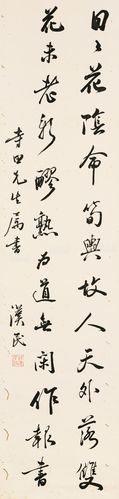 日日花陰命筍輿故人天外落雙
花未老新醪熟為道無閑作報書
寺田先生属書
漢民